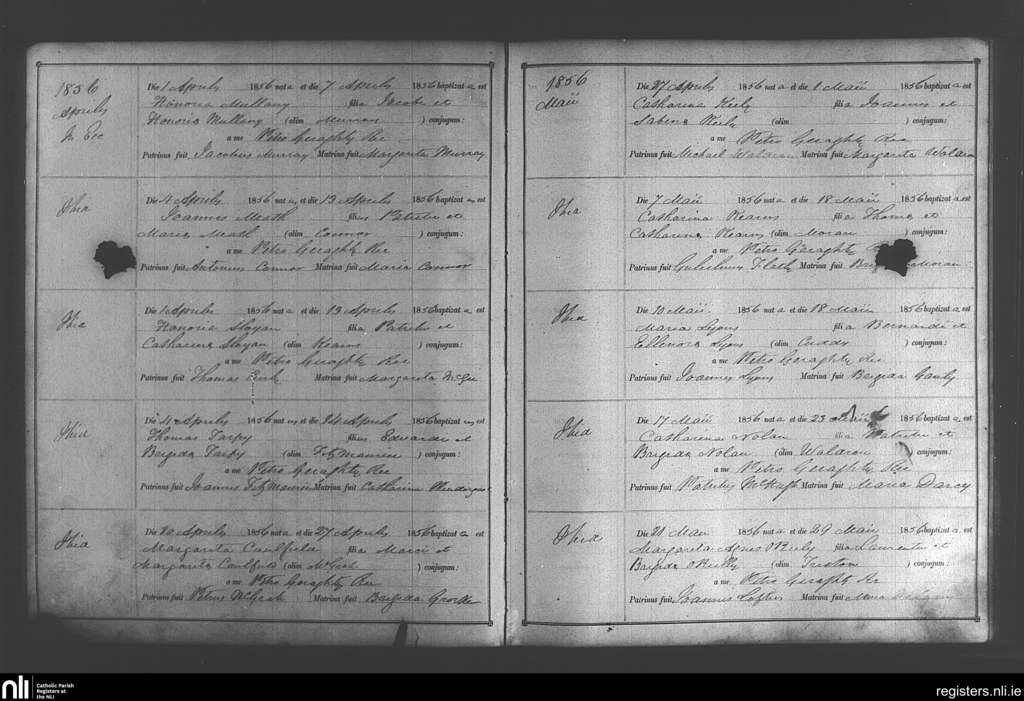 1856
Aprilis
In Ecc
Die 1 Aprilis 1856 nat a et die 7 Aprilis 1856 baptizat a est
Honoria Mullany filia Jacobi et
Honoria Mullany (olim ) conjugum:
a me Petro Geraghty Rec
Patrinus fuit Jacobus Murray Matrina fuit Margarita Murray
Die 4 Aprilis 1856 nat us et die 13 Aprilis 1856 baptizat us est
Joannes Meath filius Patritii et
Maria Meath (olim Connor ) conjugum:
a me Petro Geraghty Rec
Patrinus fuit Antonius Connor Matrina fuit Maria Connor
Ibid
Die 1 Aprilis 1856 nat a et die 13 Aprilis 1856 baptizat a est
Honoria Sloyan filia Patritii et
Catharina Sloyan (olim Kearns ) conjugum:
a me Petro Geraghty Rec
Patrinus fuit Thomas Matrina fuit Margarita McGee
Ibid
Die 4 Aprilis 1856 nat us et die 24 Aprilis 1856 baptizat us est
Thomas Tarpy filius Edwardi et
Brigida Tarpy (olim Fitzmaurice ) conjugum:
a me Petro Geraghty Rec
Patrinus fuit Joannes Fitzmaurice Matrina fuit Catharina Prendergast
Ibid
Die 20 Aprilis 1856 nat a et die 27 Aprilis 1856 baptizat a est
Margarita Caulfield filia Marci et
Margarita Caulfield (olim McGrath ) conjugum:
a me Petro Geraghty Rec
Patrinus fuit Petrus McGrath Matrina fuit Brigida
1856
Maii
Die 27 Aprilis 1856 nat a et die 1 Maii 1856 baptizat a est
Catharina Keely filia Joannis et
Sabina Keely (olim ) conjugum:
a me Petro Geraghty Rec
Patrinus fuit Michael Waldron Matrina fuit Margarita Waldron
Die 7 Maii 1856 nat a et die 18 Maii 1856 baptizat a est
Catharina Kearns filia Thoma et
Catharina Kearns (olim Moran ) conjugum:
a me Petro Geraghty
Patrinus fuit Flatly Matrina fuit Moran
Ibid
Die 10 Maii 1856 nat a et die 18 Maii 1856 baptizat a est
Maria Lyons filia Bernardi et
Ellenora Lyons (olim Cuddy ) conjugum:
a me Petro Geraghty Rec
Patrinus fuit Joannes Lyons Matrina fuit Brigida
Ibid
Die 17 Maii 1856 nat a et die 23 Maii 1856 baptizat a est
Catharina Nolan filia Patritii et
Brigida Nolan (olim Waldron ) conjugum:
a me Petro Geraghty Rec
Patrinus fuit Patritius McHugh Matrina fuit Maria Darcy
Ibid
Die 21 Maii 1856 nat a et die 29 Maii 1856 baptizat a est
Margarita Agnes O'Reilly filia Laurentii et
Brigida O'Reilly (olim Triston ) conjugum:
a me Petro Geraghty Rec
Patrinus fuit Joannes Loftus Matrina fuit Maria
nli
Catholic Parish
Registers at
the NLI
registers.nli.ie